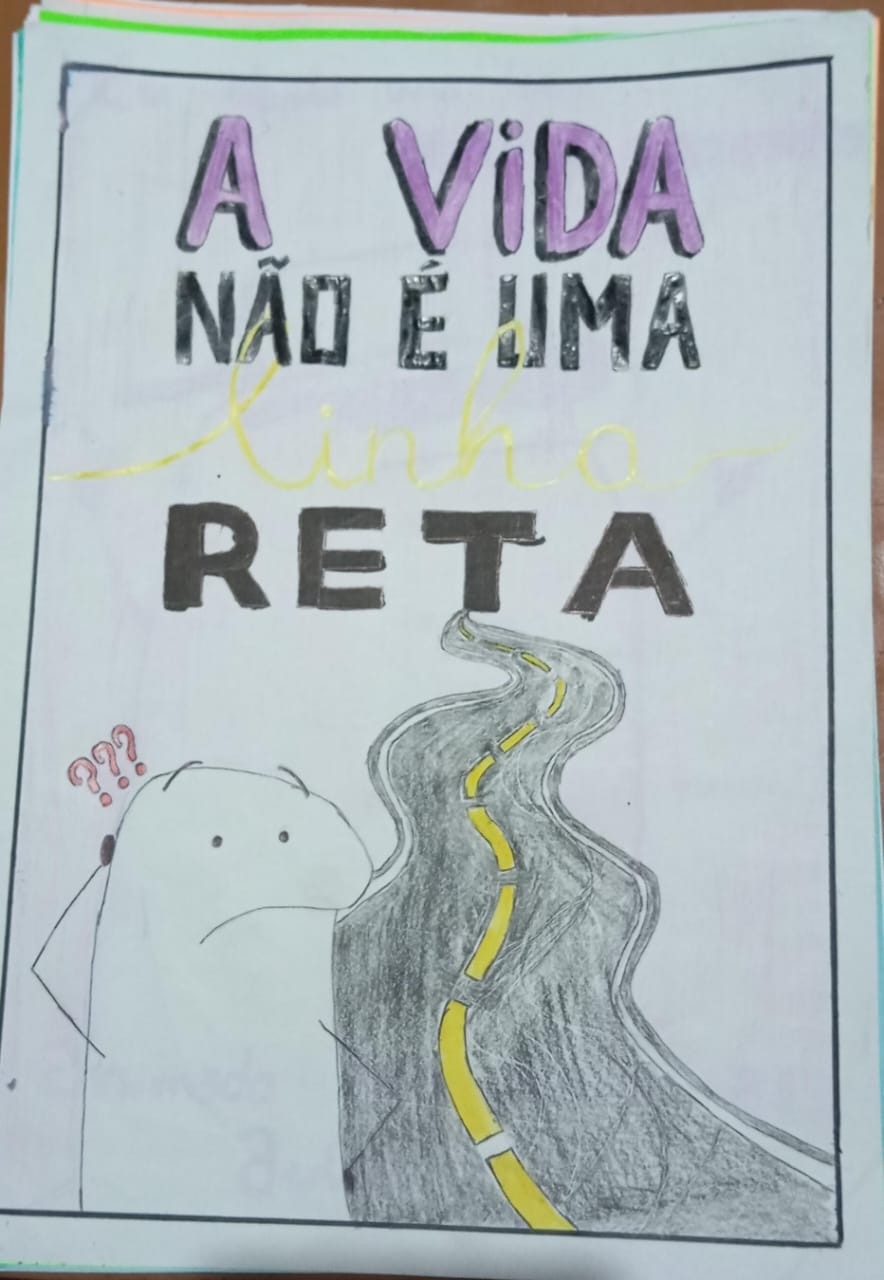 A ViDA
NÃO É UMA
linha
RETA
???